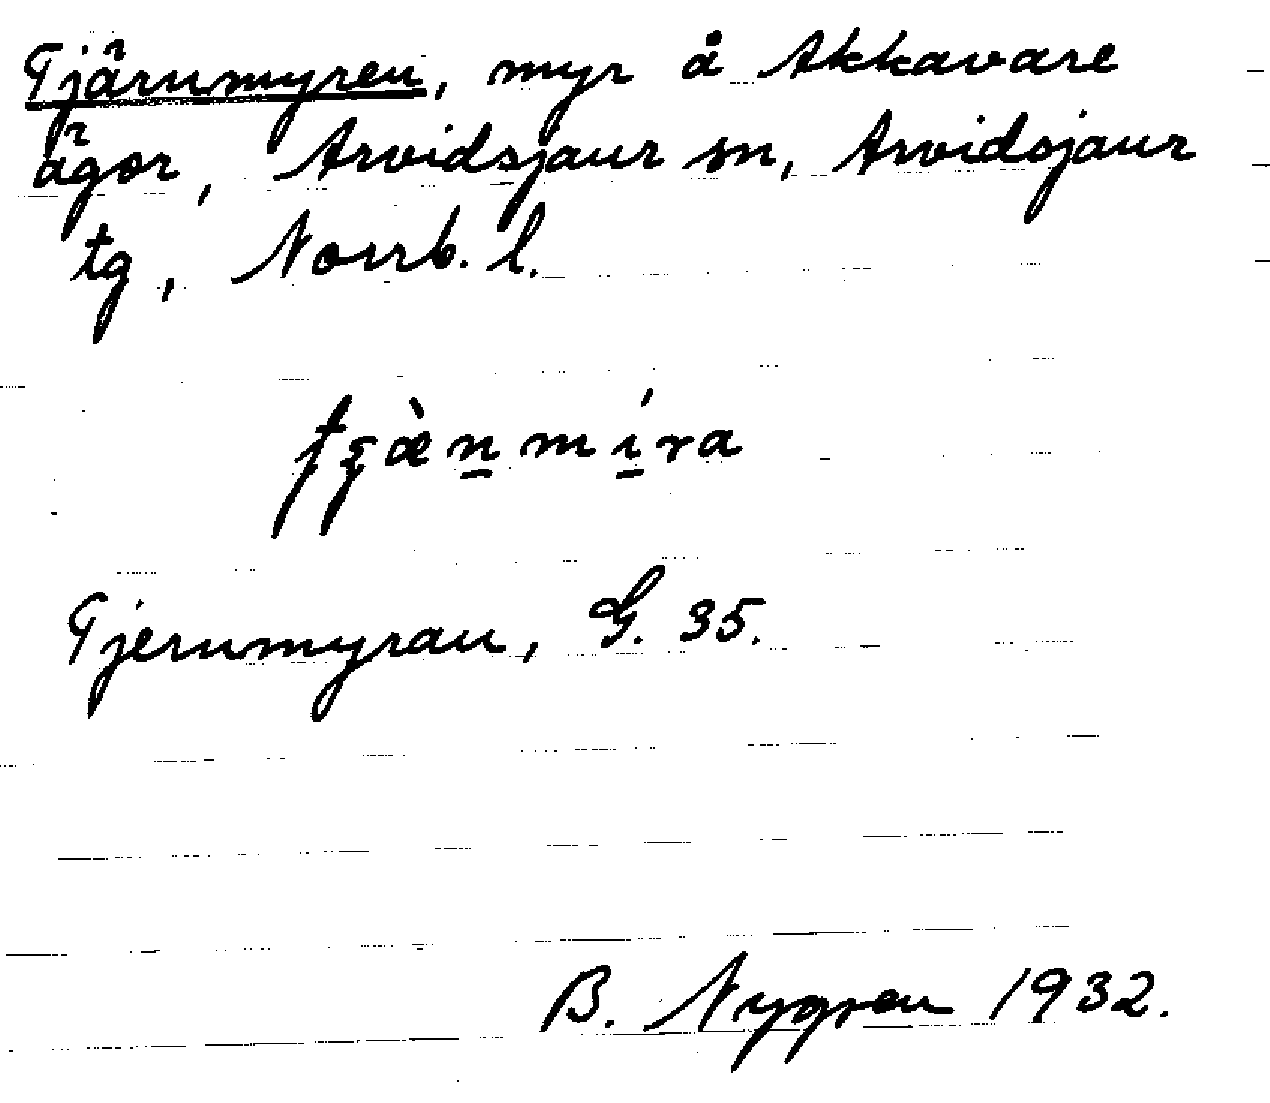 Tjärnmyren, myr å Akkavare
ägor, Arvidsjaur sn, Arvidsjaur
tg, Norrb. l.
Tjernmyran, G. 35.
B. Nygren 1932.